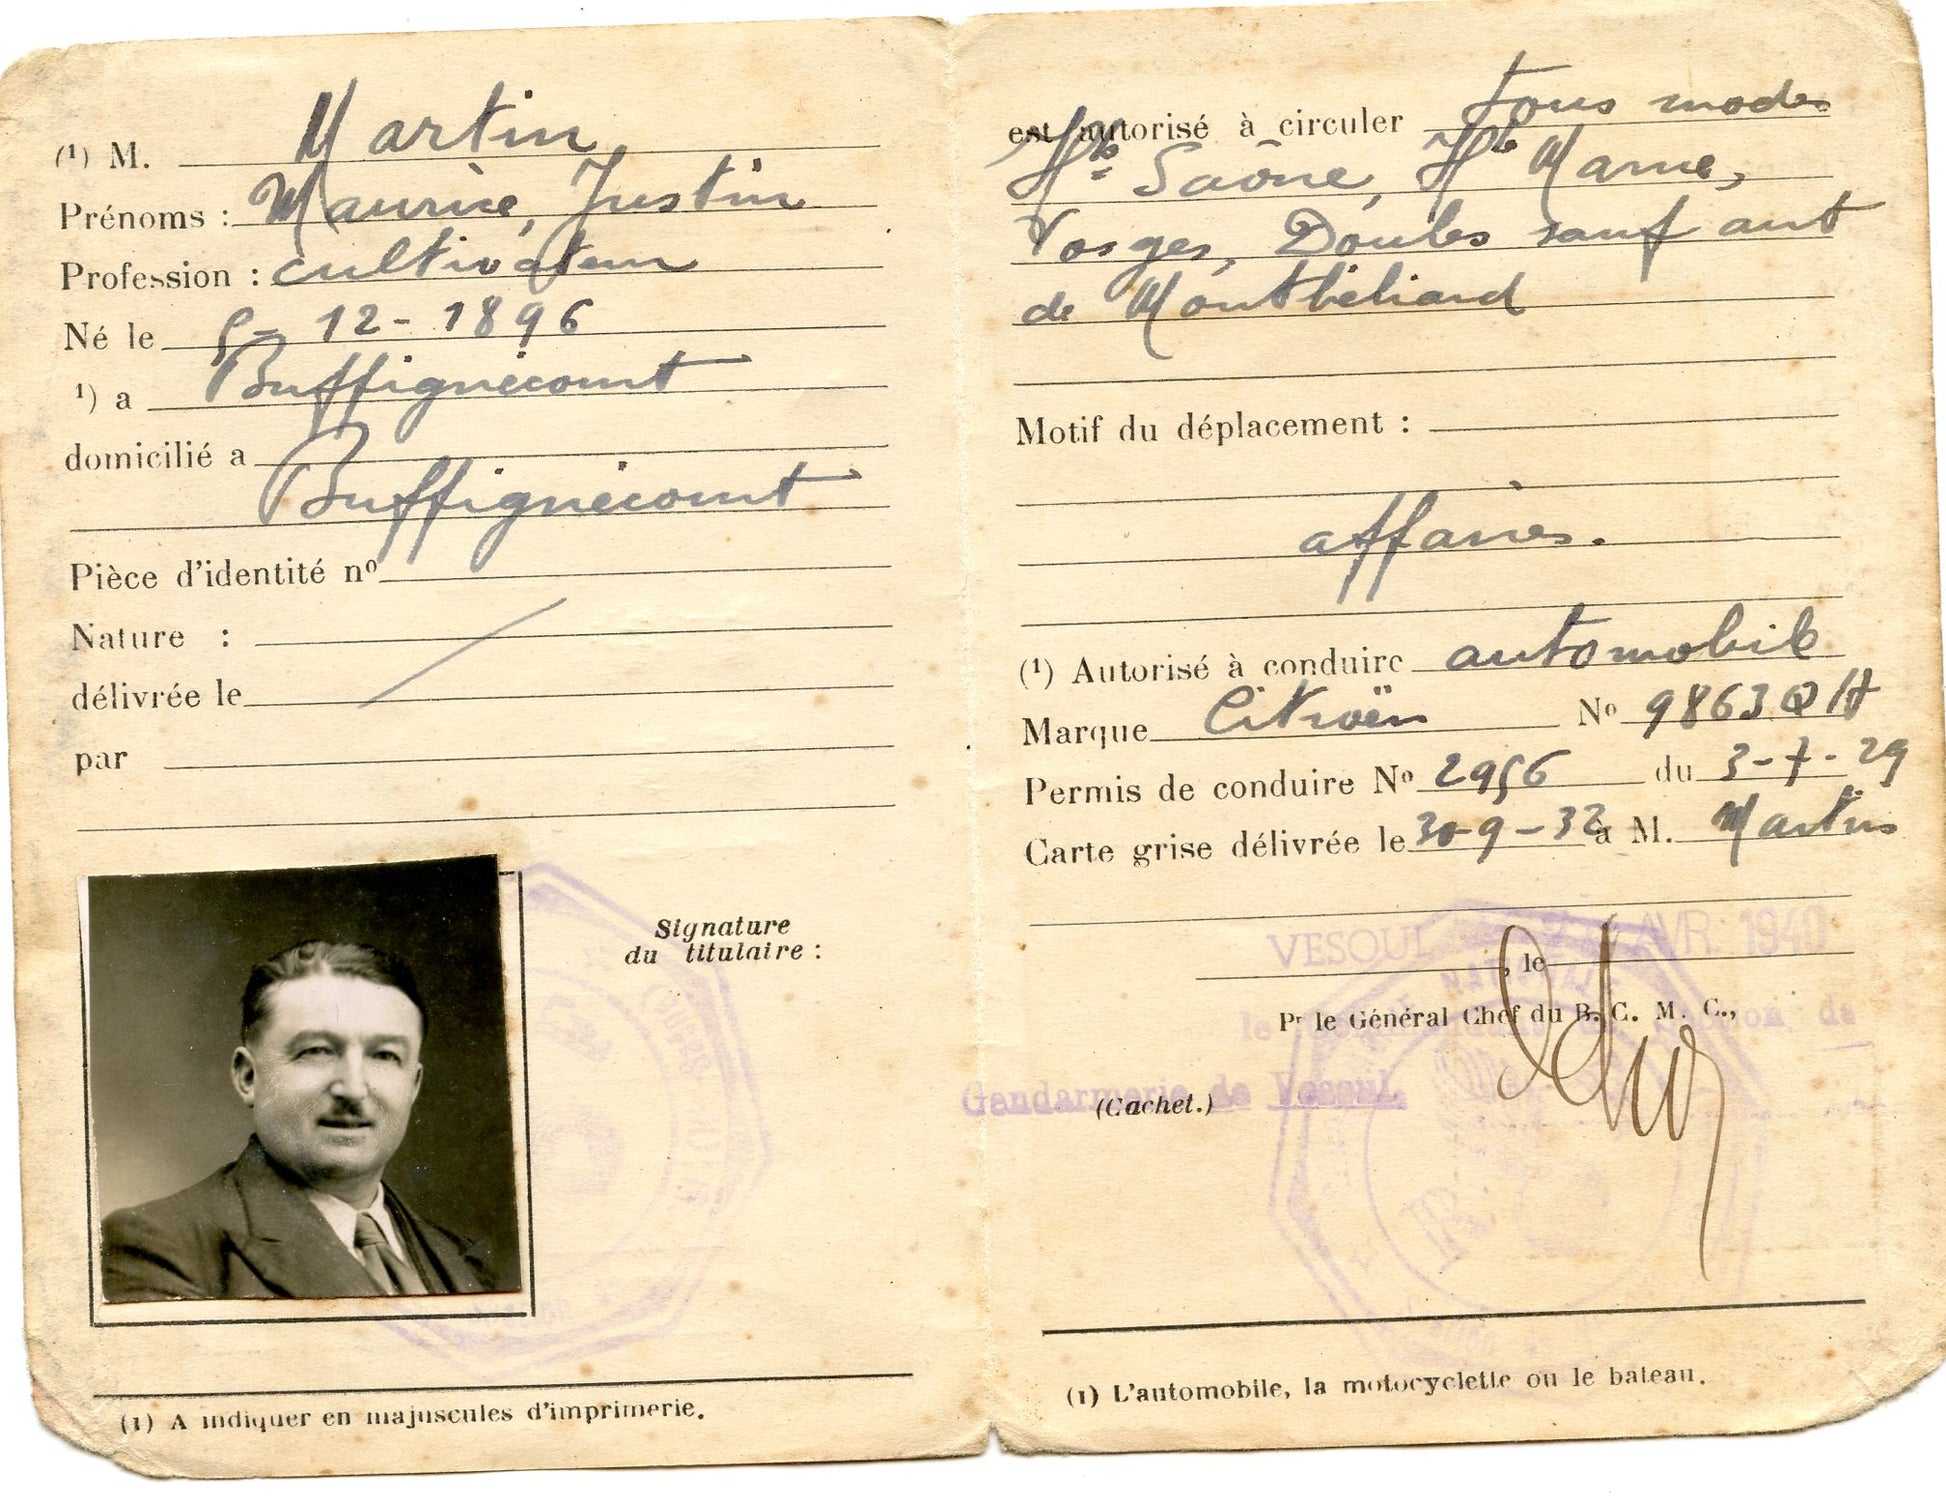 (1) M. Martin
Prénoms : Maurice, Justin
Profession : cultivateur
Né le 5-12-1896
1) a Buffignécourt
domicilié a
Buffignécourt
Pièce d'identité nº
Nature :
délivrée le
par
Signature
du titulaire :
(1) A indiquer en majuscules d'imprimerie.
est autorisé à circuler tous modes
Hte Saône, Hte Marne,
Vosges, Doubs sauf arrt
de Montbéliard
Motif du déplacement :
affaires.
(1) Autorisé à conduire automobile
Marque Citroën Nº 9863 QH
Permis de conduire Nº 2956 du 3-7-29
Carte grise délivrée le 30-9-32 à M. Martin
VESOUL, le AVR. 1940
Pr le Général Chef du B. C. M. C.,
Gendarmerie de Vesoul
(Cachet.)
(1) L'automobile, la motocyclette ou le bateau.